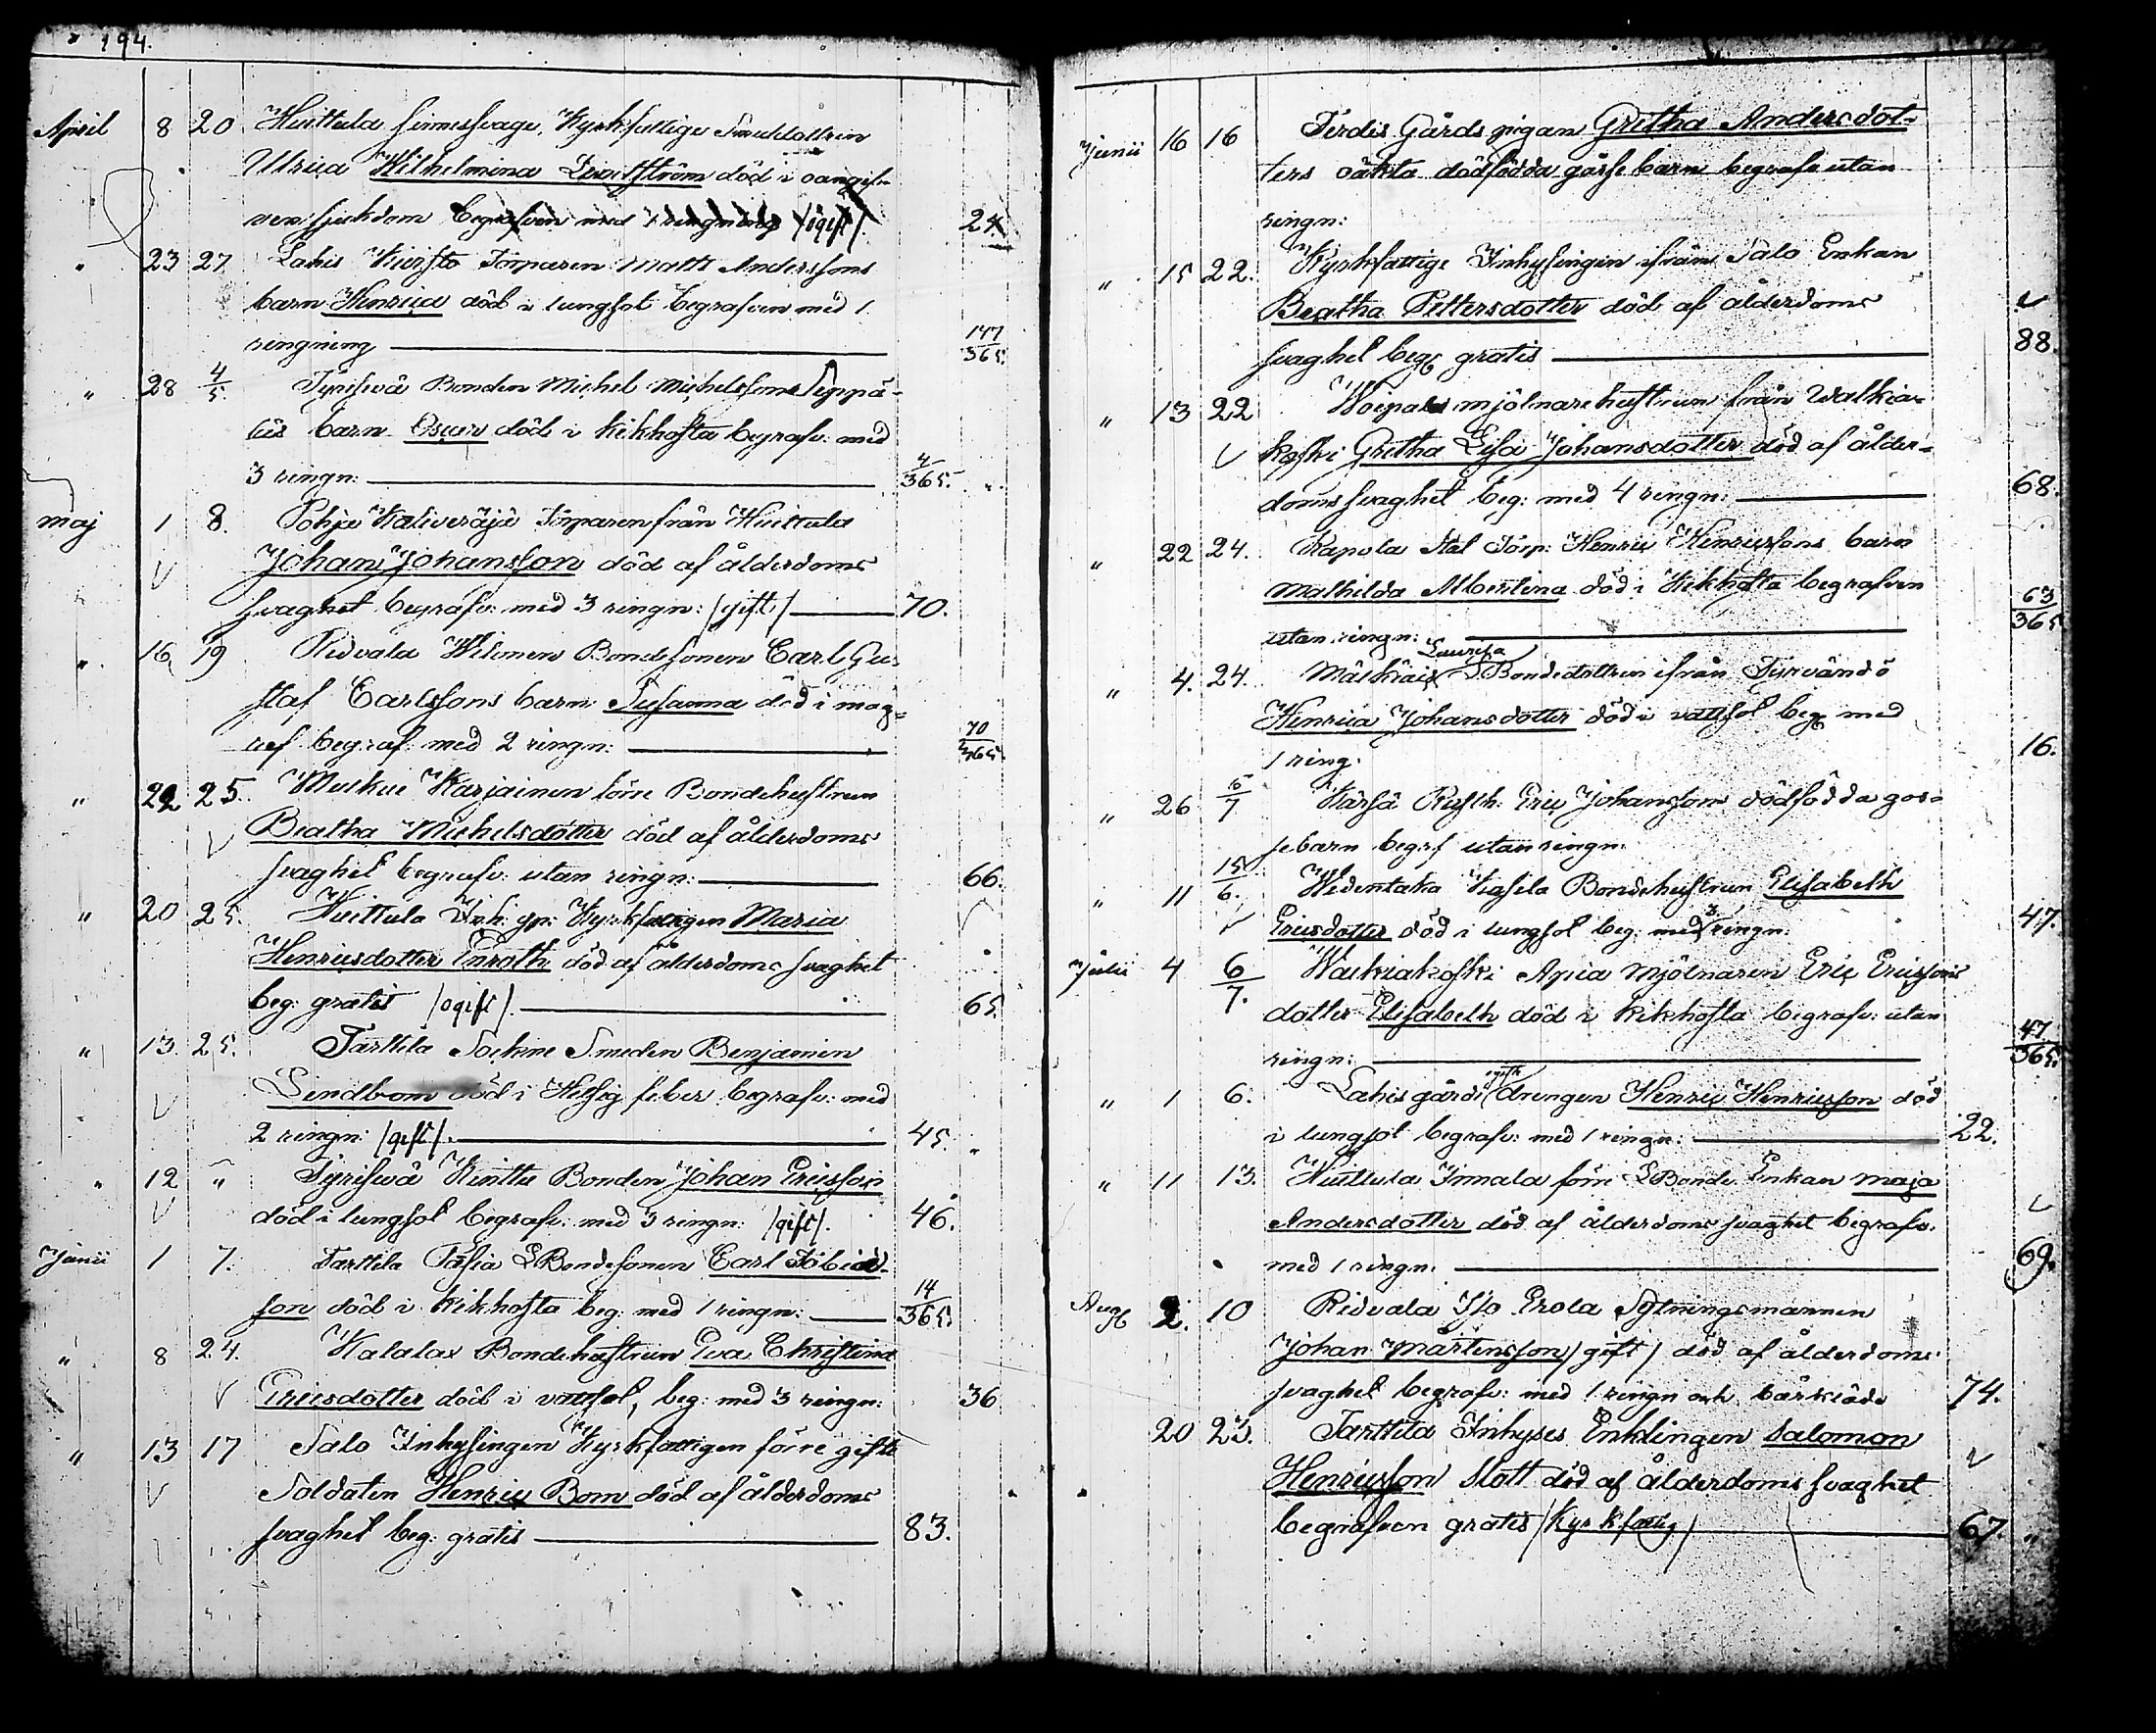 194.
April 8 20 Huittula sinnessvage, Kyrkfattige Smeddottren
Ulrica Wilhelmina Löfström död i oangif-
ven sjukdom begrafven med 1 ringning /ogift/ 24
" 23 27 Lahis Kuisto Torparen Matts Anderssons
barn Henrica död i lungsot begrafven med 1
ringning 147/365.
" 28 4/5. Tyriswä Bonden Michel Michelssons Seppä-
läs barn Oscar död i kikhosta begrafv: med
3 ringn: 4/365.
Maj 1 8. Pohja Kaliveräjä Torparen från Huittula
Johan Johansson död af ålderdoms
svaghet begrafv: med 3 ringn: /gift/ 70.
" 16 19 Ridvala Wilonen Bondesonen Carl Gu-
staf Carlssons barn Susanna död i mag-
ref begraf: med 2 ringn: 70/365.
" 22 25. Karjainen förre Bondehustrun
Beatha Michelsdotter död af ålderdoms
svaghet begrafv: utan ringn: 66.
" 20 25. Huittula Inh: qp: Kyrkfattigen Maria
Henricsdotter Enroth död af ålderdoms svaghet
beg: gratis /ogift/. 65.
" 13. 25. Tarttila Sockne Smeden Benjamin
Lindbom död i Hetsig feber begrafv: med
2 ringn: /gift/. 45.
" 12 " Tyriswä Kinttu Bonden Johan Ericsson
död i lungsot begrafv: med 3 ringn: /gift/. 46.
Junii 1 7. Tarttila Pässiä LBondesonen Carl Tobias-
son död i kikhosta beg: med 1 ringn: 14/365.
" 8 24. Kalalax Bondehustrun Eva Christina
Ericsdotter död i vattsot, beg: med 3 ringn: 36
" 13 17 Salo Inhysingen Kyrkfattigen förre gifte
Soldaten Henric Bom död af ålderdoms
svaghet beg: gratis 83.
Junii 16 16 Ferdis Gårds pigan Gretha Andersdot-
ters oäkta dödfödda gosse barn begrafv utan
ringn:
" 15 22. Kyrkfattige Inhysingen ifrån Salo Enkan
Beatha Pettersdotter död af ålderdoms
svaghet beg: gratis 88.
" 13 22 Woipala mjölnarehustrun från Walkia-
koski Gretha Lisa Johansdotter död af ålder-
doms svaghet beg: med 4 ringn: 68.
" 22 24. Rapola Torp: Henric Henricssons barn
Mathilda Albertina död i Kikhosta begrafven
utan ringn: 63/365
" 4. 24. Mälkiäis Laurila Bondedottren ifrån Tyrvändö
Henrica Johansdotter död i vattsot beg: med
1 ring. 16.
" 26 6/7 Kärsä Rusth: Eric Johanssons dödfödda gos-
sebarn begrf utan ringn:
" 11 15/6. Wedentaka Kasila Bondehustrun Elisabeth
Ericsdotter död i lungsot beg: med 3 ringn: 47.
Julii 4 6/7. Walkiakoski Apia mjölnaren Eric Ericssons
dotter Elisabeth död i kikhosta begrafv: utan
ringn: 47/365.
" 1 6. Lahis gårds ogifte drengen Henric Henricsson död
i lungsot begrafv: med 1 ringn: 22.
" 11 13. Huittula Inmala förre LBonde Enkan Maja
Andersdotter död af ålderdoms svaghet begrafv.
med 1 ringn. 69.
Aug: 2. 10 Ridvala Iso Erola Sytningsmannen
Johan Mårtensson /gift/ död af ålderdoms
svaghet begrafv: med 1 ringn och bårkläde 74.
20 23. Tarttila Inhyses Enklingen Salomon
Henricsson Slott död af ålderdoms svaghet
begrafven gratis /Kyrkfattig/ 67 "